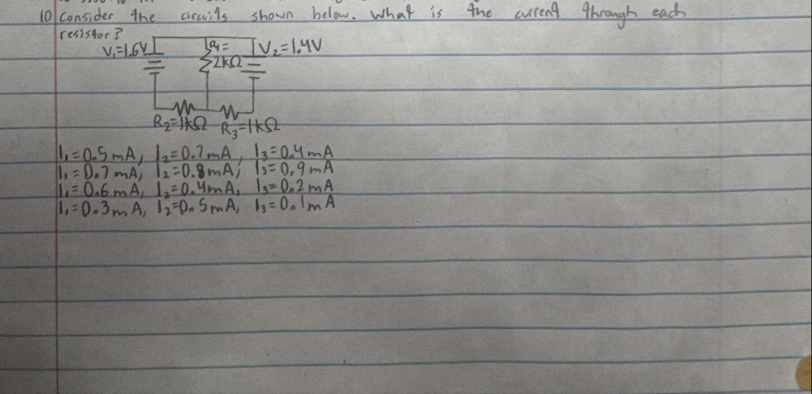 10 Consider the circuits shown below. What is the current through each
resistor?
V₁=1.6V R₁= V₂=1.4V
2kΩ
R₂=1kΩ R₃=1kΩ
I₁=0.5mA, I₂=0.7mA, I₃=0.4mA
I₁=0.7mA, I₂=0.8mA, I₃=0.9mA
I₁=0.6mA, I₂=0.4mA, I₃=0.2mA
I₁=0.3mA, I₂=0.5mA, I₃=0.1mA